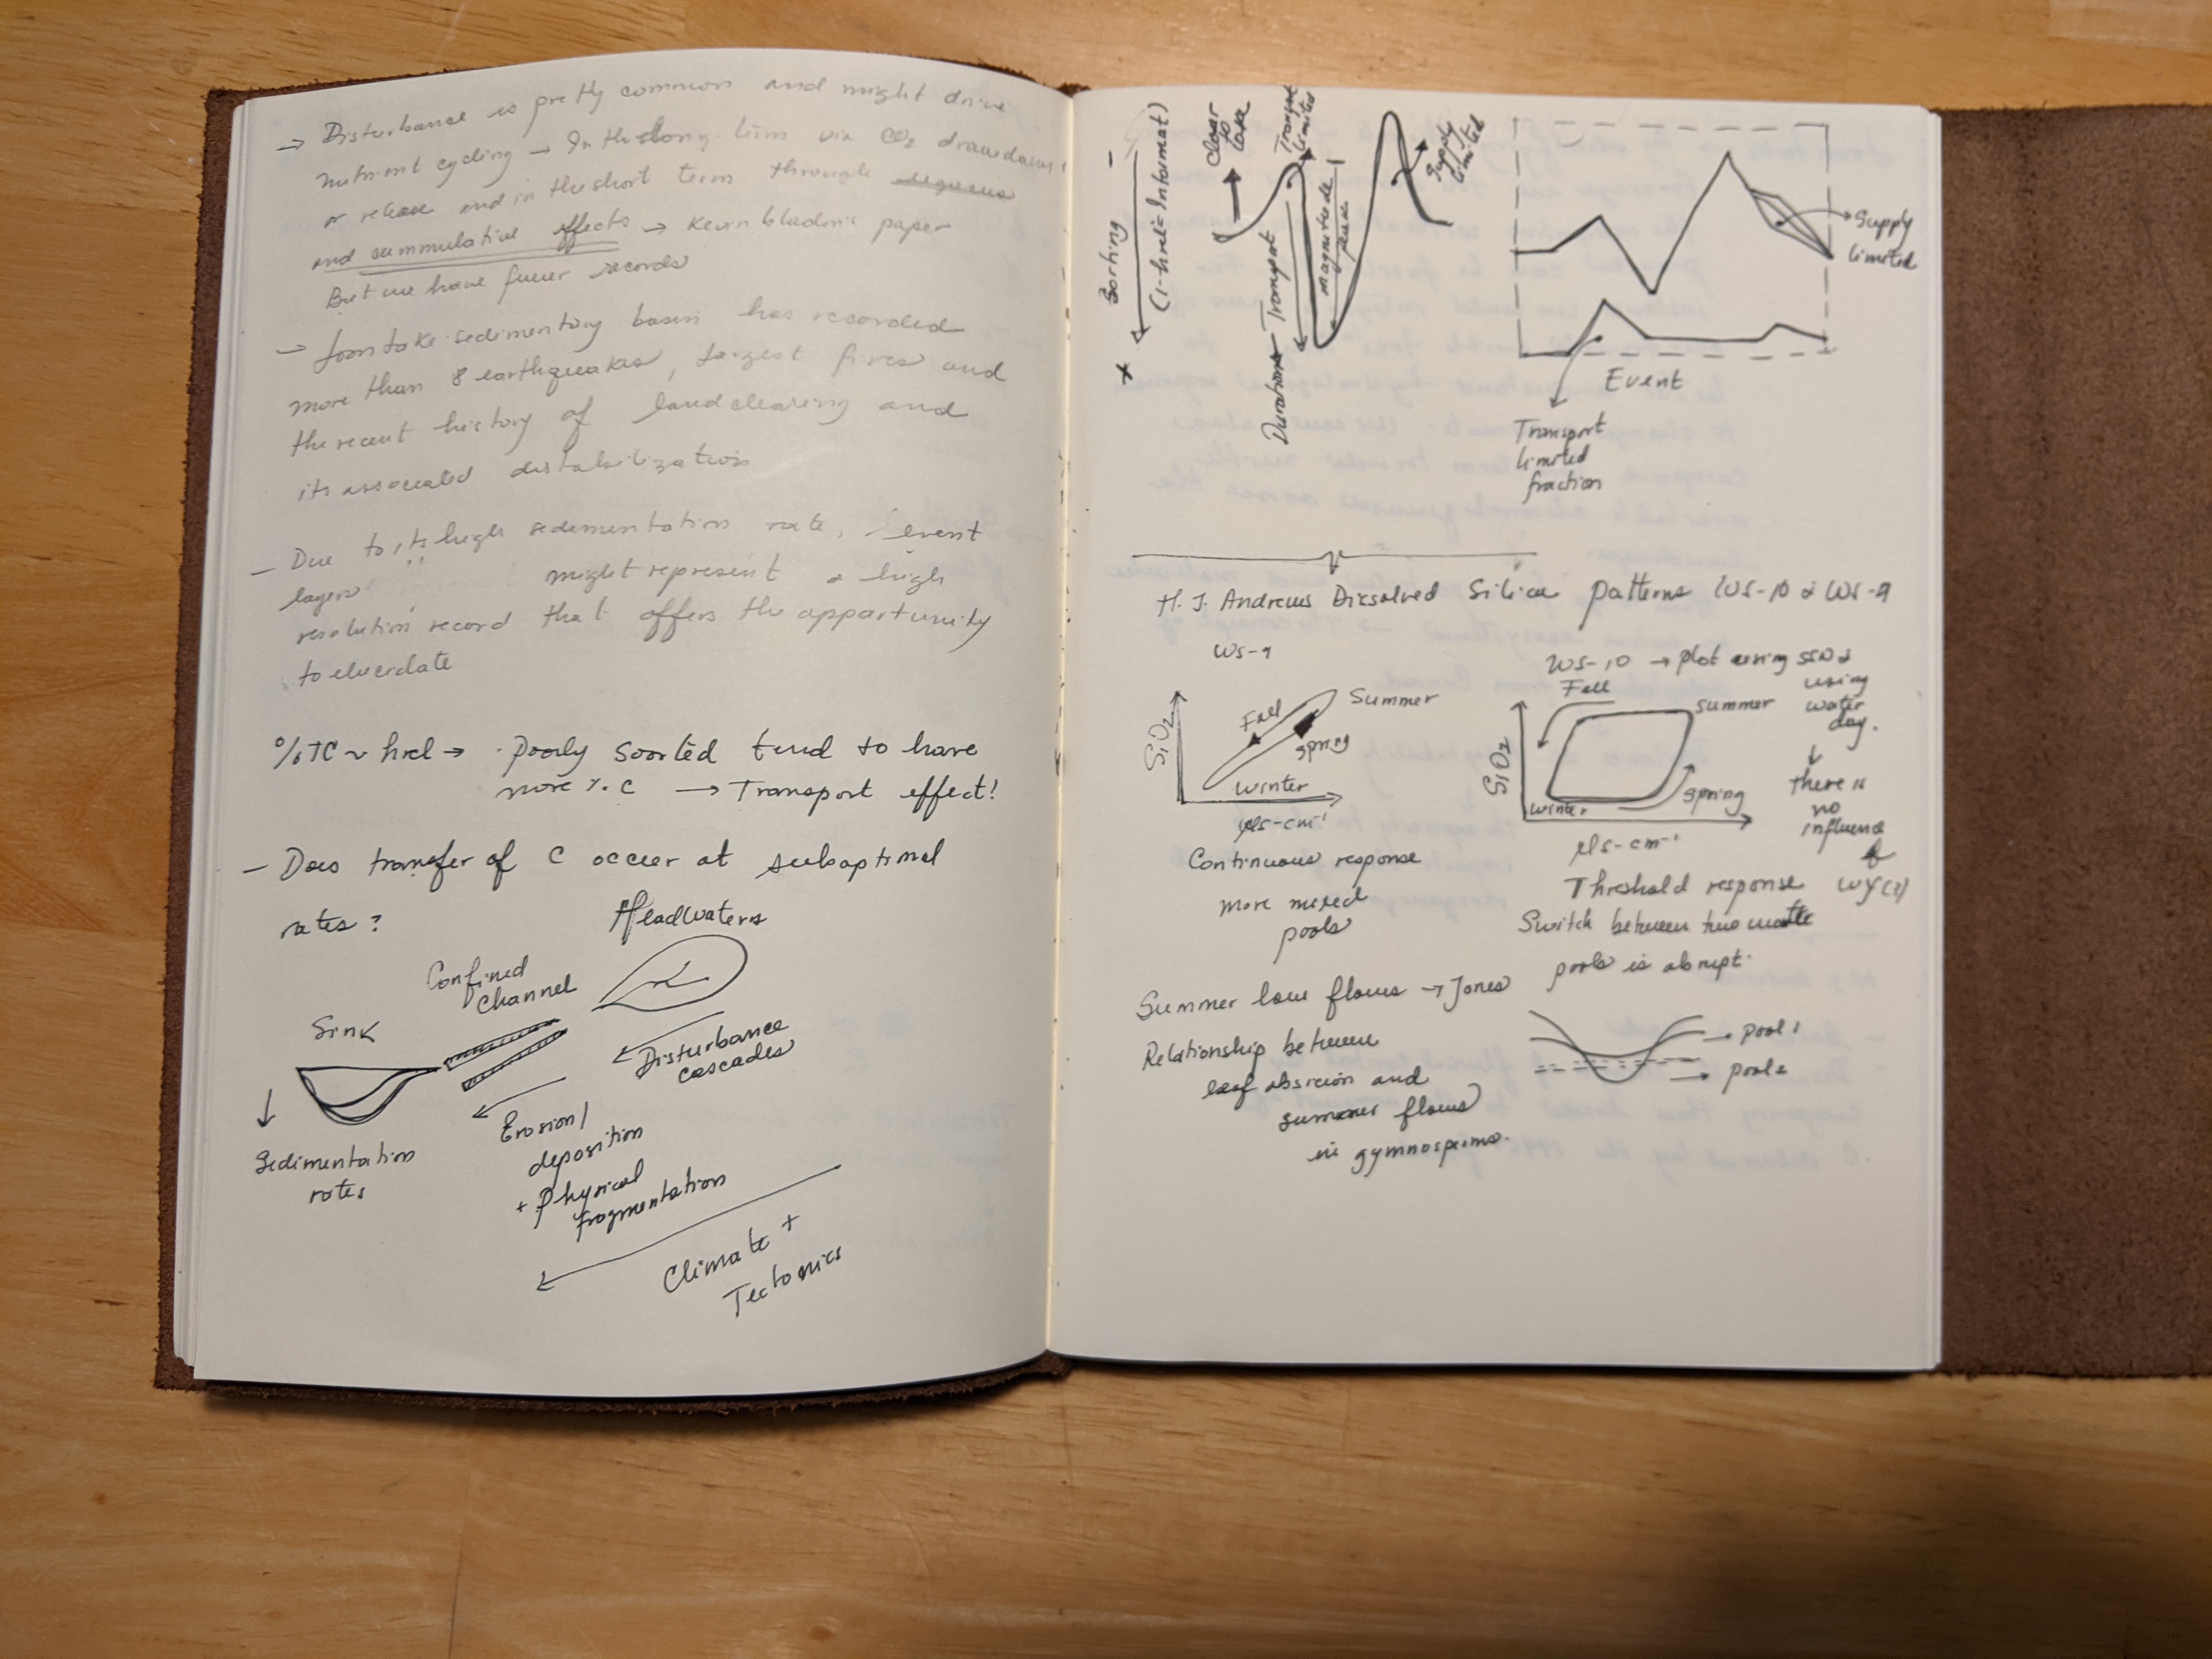 → Disturbance is pretty common and might drive
nutrient cycling → In the long term via CO₂ drawdown
or release and in the short term through
and cummulative effects → Kevin bladon's paper
But we have fewer records
→ sedimentary basin has recorded
more than 8 earthquakes, largest fires and
the recent history of landclearing and
its associated destabilization
- Due to its high sedimentation rate, event
layers might represent a high
resolution record that offers the opportunity
to elucidate
%TC ~ hrel → · Poorly Soorted tend to have
more %. C → Transport effect!
- Does transfer of C occur at suboptimal
rates ?
Headwaters
Confined
Channel
Sink
Disturbance
cascades
Erosion/
deposition
+ Physical
fragmentation
Sedimentation
rates
Climate +
Tectonics
- Sorting +
(1-hrel = Informat)
Closer
to
lake
Transport
limited
Duration Transport
magnitude
Supply
limited
Supply
limited
Event
Transport
limited
fraction
H. J. Andrews Dissolved Silica patterns WS-10 & WS-9
WS-9
SiO₂
Fall
Spring
Summer
Winter
µs-cm⁻¹
Continuous response
More mixed
pools
WS-10 → plot using SSD &
using
water
day.
↓
there is
no
influence
of
WY(?)
Fall
Summer
SiO₂
Winter
Spring
µs-cm⁻¹
Threshold response
Switch between two water
pools is abrupt.
Summer low flows → Jones
Relationship between
leaf abscicion and
summer flows
in gymnosperms.
→ pool 1
→ pool 2